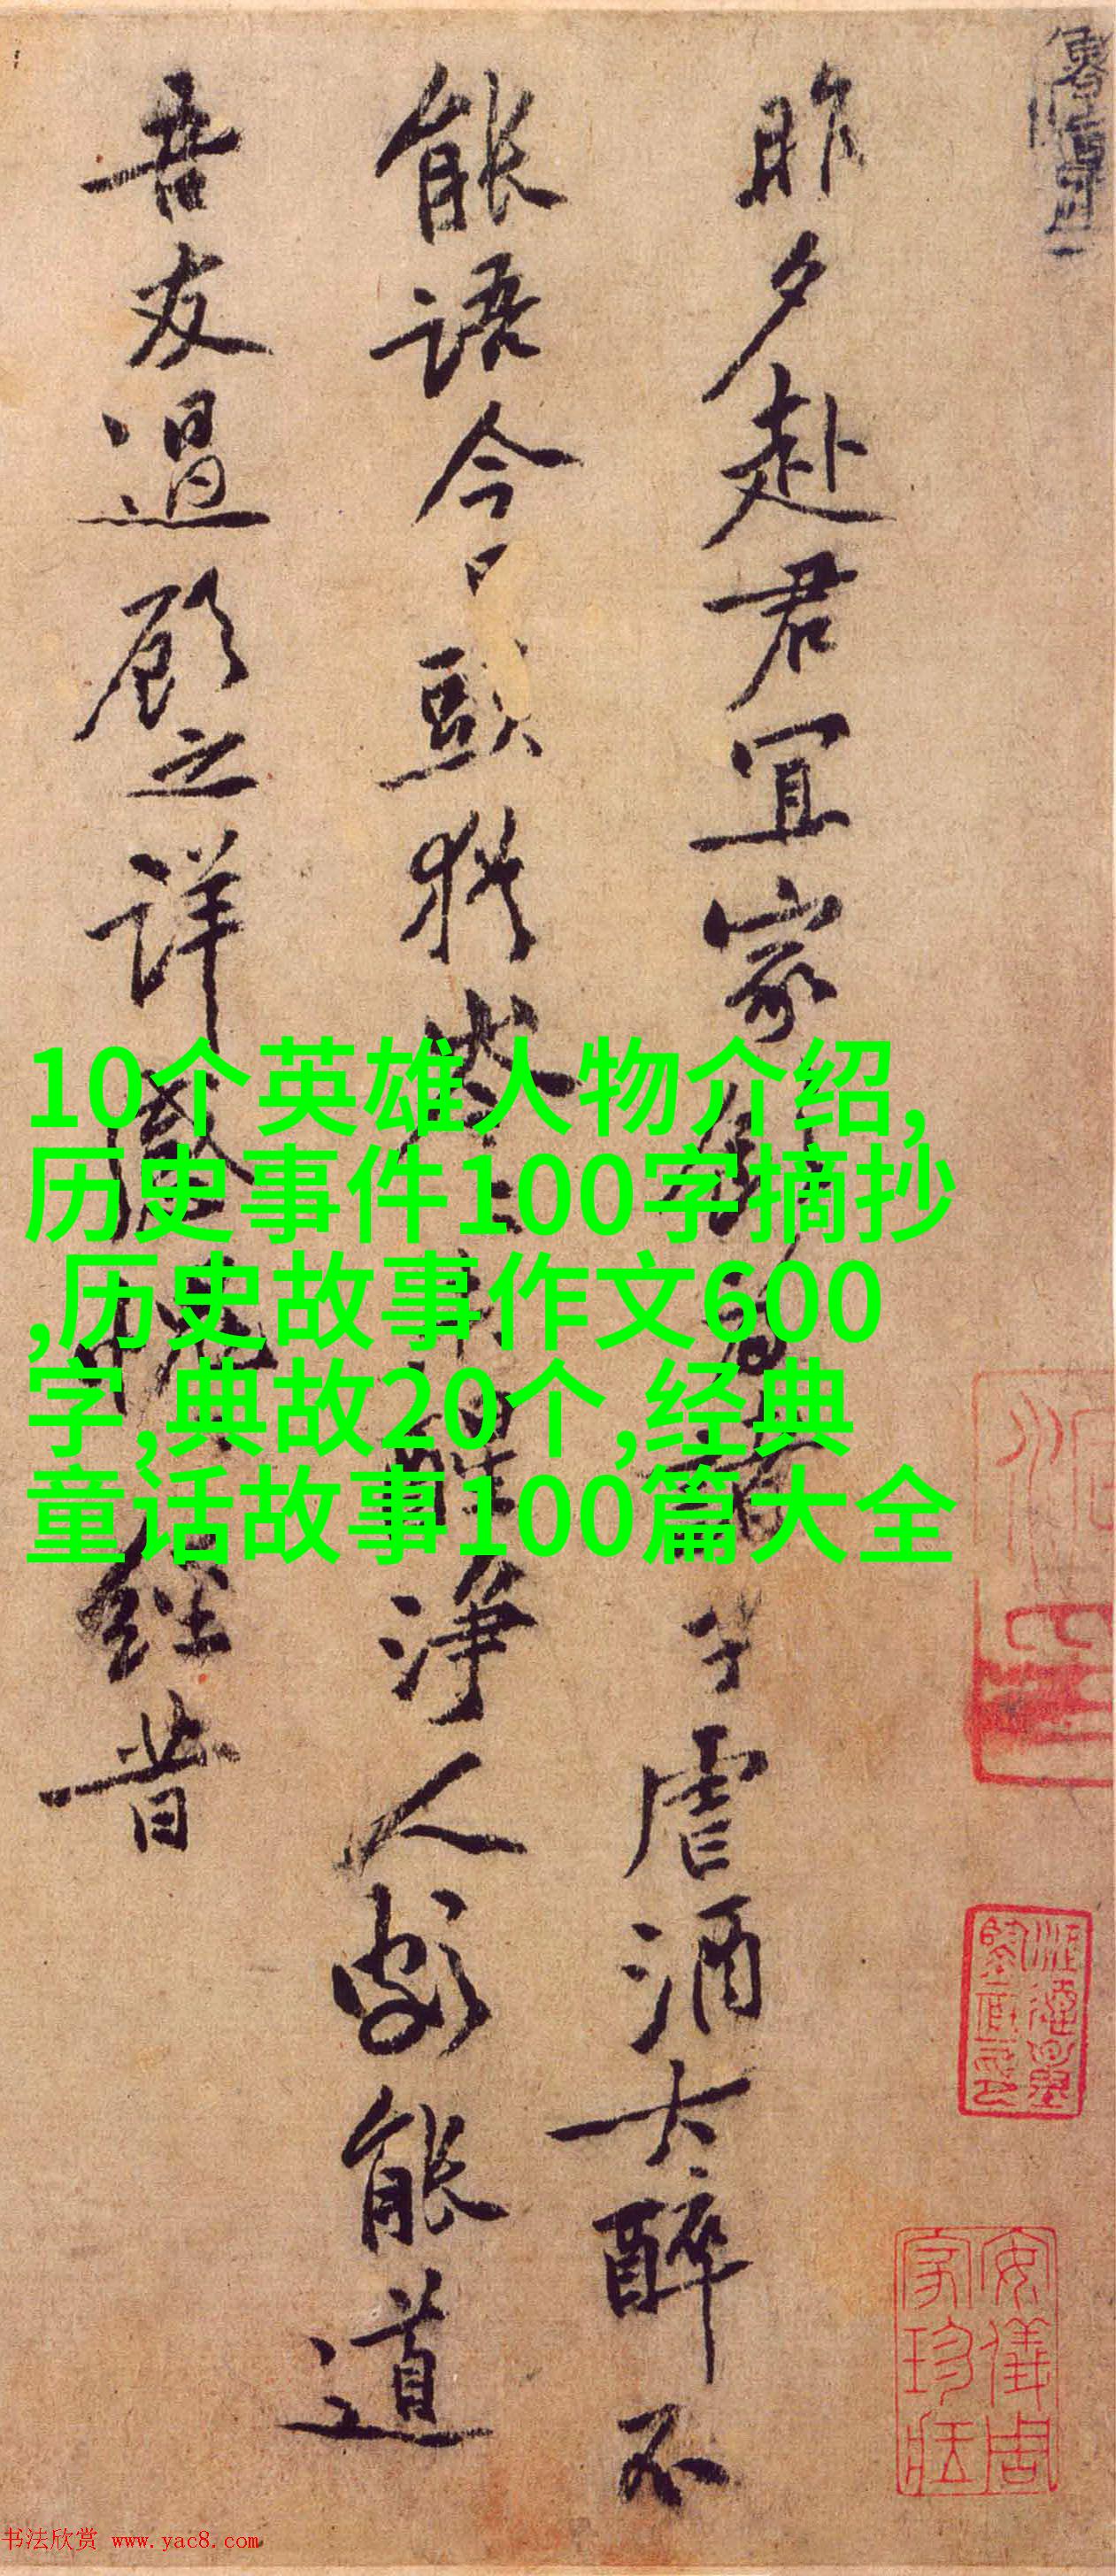 昨夕赴君宜家 子虐酒大醉不
能語今日頭猶岑岑 醒淨人劇能道
吾友過顧之詳感愧經昔
10个英雄人物介绍,
历史事件100字摘抄
,历史故事作文600
字,典故20个,经典
童话故事100篇大全
安儀周
家珍藏
书法欣赏 www.yac8.com